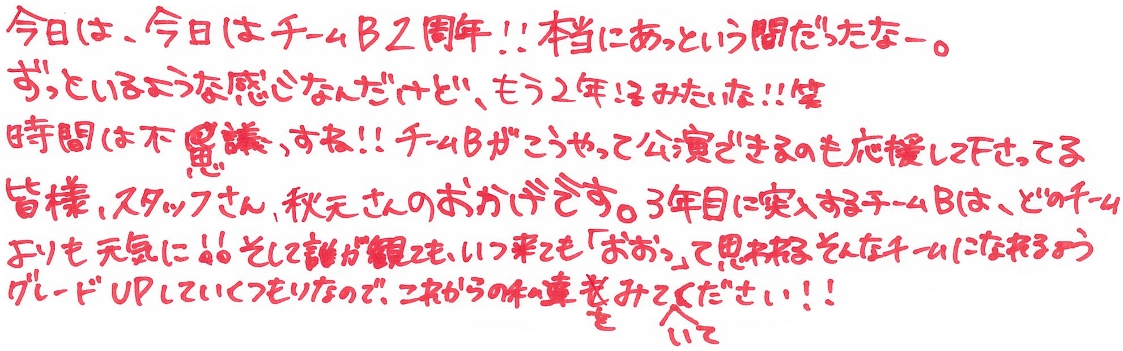 今日は、今日はチームB2周年!!本当にあっという間だったなー。
ずっといるような感じなんだけど、もう2年!?みたいな!!笑
時間は不思議っすね!!チームBがこうやって公演できるのも応援して下さってる
皆様、スタッフさん、秋元さんのおかげです。3年目に突入するチームBは、どのチーム
よりも元気に!!そして誰が観ても、いつ来ても「おおっ」って思われるそんなチームになれるよう
グレードUPしていくつもりなので、これからの私達をみていてください!!